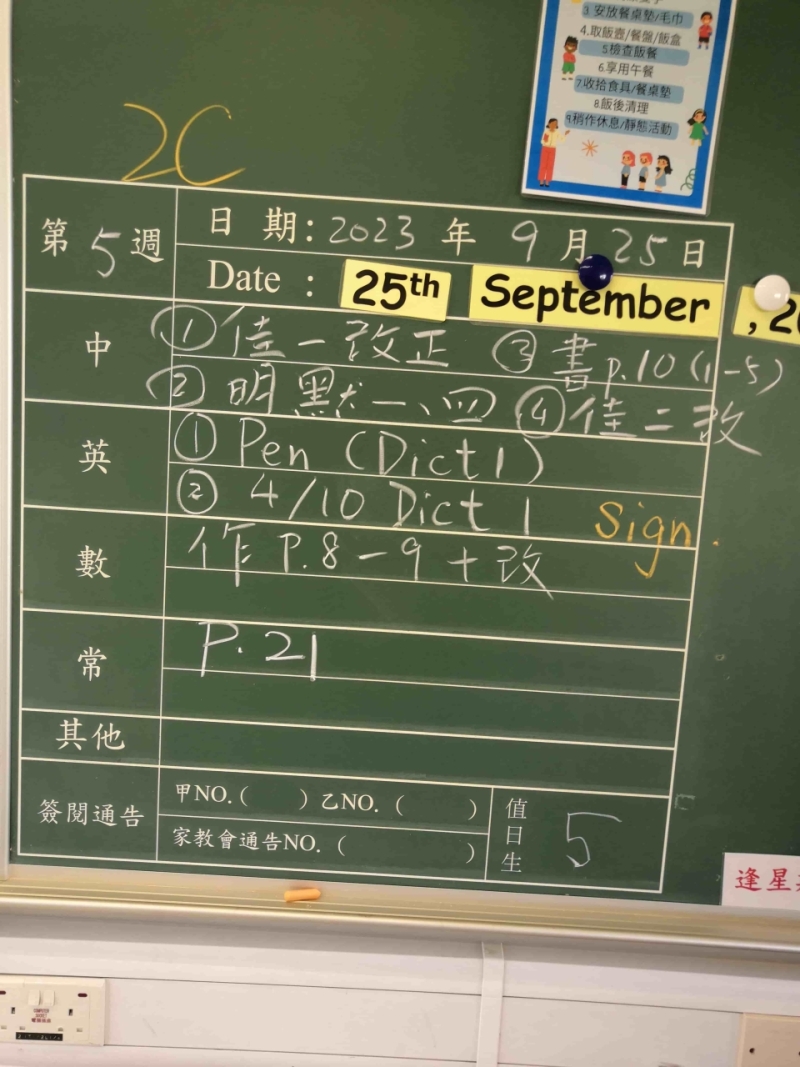 3.安放餐桌墊/毛巾
4.取飯壺/餐盤/飯盒
5.檢查飯餐
6.享用午餐
7.收拾食具/餐桌墊
8.飯後清理
9.稍作休息/靜態活動
2C
第5週
日 期: 2023 年 9 月 25 日
Date : 25th September , 2
中
① 佳一改正 ③ 書p.10(1-5)
② 明默一、四 ④ 佳二改
英
① Pen (Dict 1)
② 4/10 Dict 1 Sign.
數
作 P.8-9+改
常
P.21
其他
簽閱通告
甲NO.( ) 乙NO. ( )
家教會通告NO. ( )
值日生 5
逢星
COMPUTER SOCKET